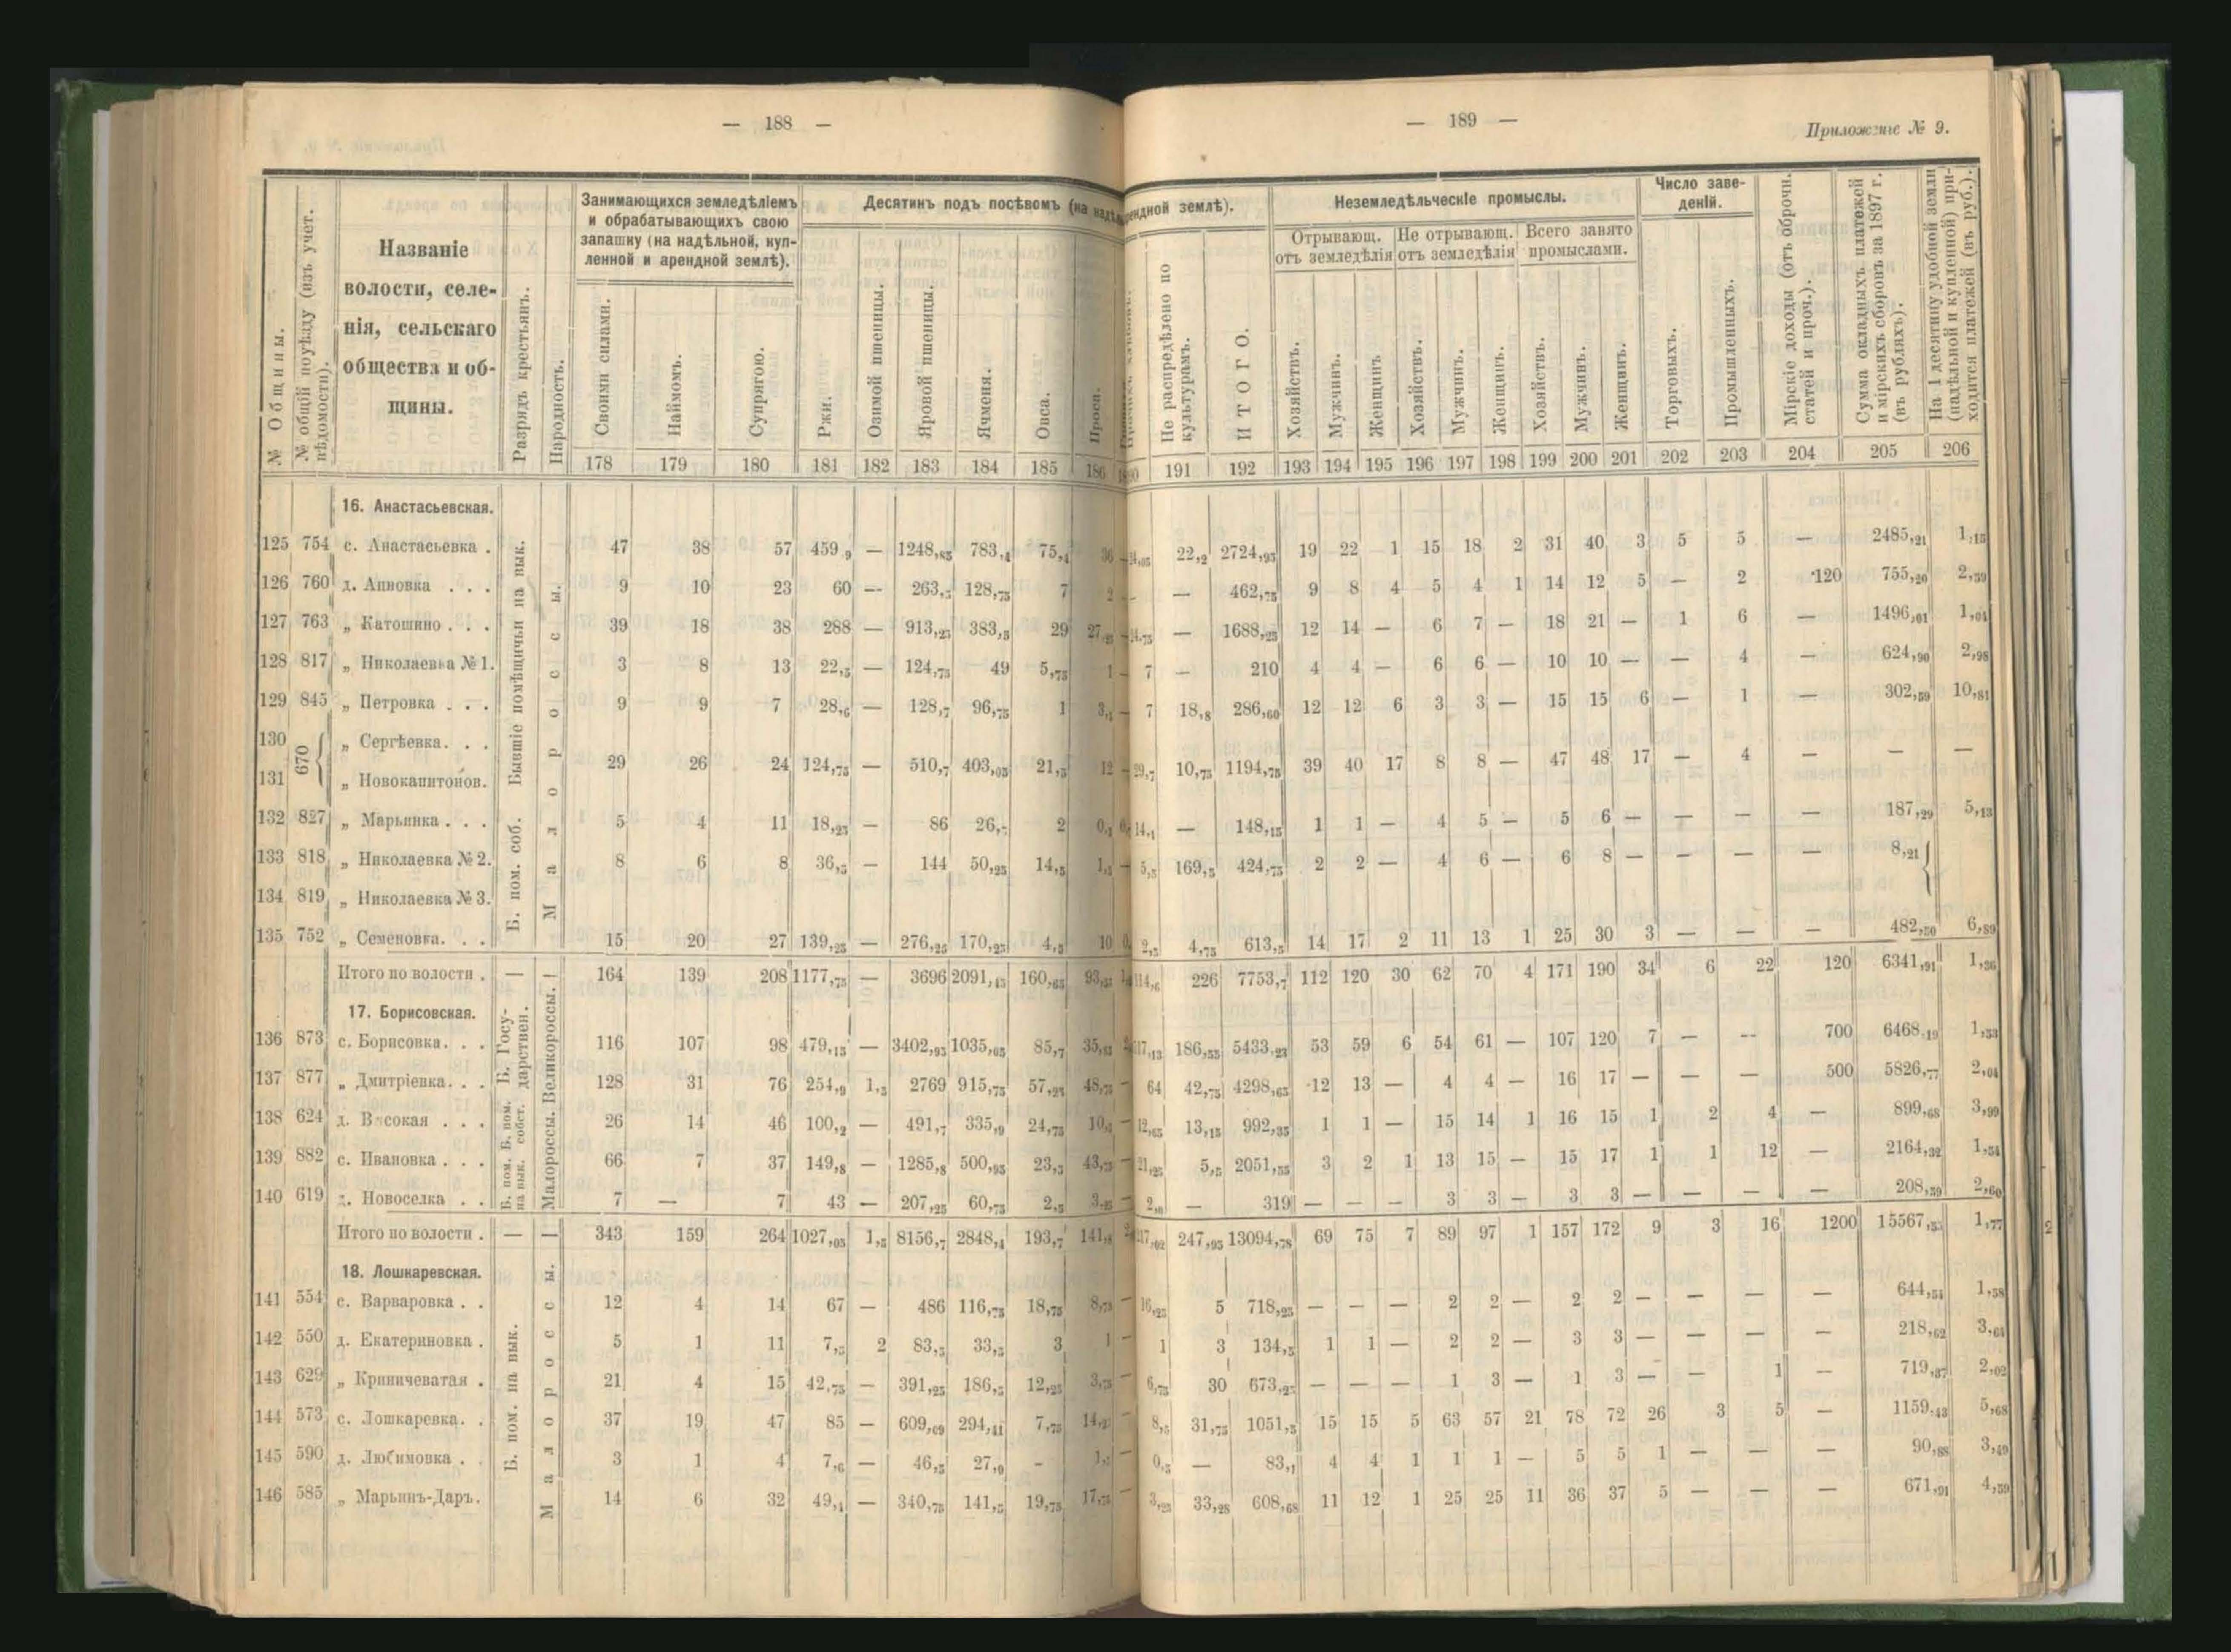 — 188 —
— 189 —
Приложеніе № 9.
№ Общины.
№ общій по уѣзду (изъ учет. вѣдомости).
Названіе
волости, селе-
нія, сельскаго
общества и об-
щины.
Разрядъ крестьянъ.
Народность.
Занимающихся земледѣліемъ
и обрабатывающихъ свою
запашку (на надѣльной, куп-
ленной и арендной землѣ).
Своими силами.
Наймомъ.
Супрягою.
Десятинъ подъ посѣвомъ (на
Ржи.
Озимой пшеницы.
Яровой пшеницы.
Ячменя.
Овса.
Проса.
землѣ).
Не распредѣлено по культурамъ.
ИТОГО.
Неземледѣльческіе промыслы.
Отрывающ. отъ земледѣлія
Не отрывающ. отъ земледѣлія
Всего занято промыслами.
Хозяйствъ. Мужчинъ. Женщинъ Хозяйствъ. Мужчинъ. Женщинъ. Хозяйствъ. Мужчинъ. Женщинъ.
Число заве-
деній.
Торговыхъ.
Промышленныхъ.
Мірскіе доходы (отъ оброчн. статей и проч.).
Сумма окладныхъ платежей и мірскихъ сборовъ за 1897 г. (въ рубляхъ).
На 1 десятину удобной земли (надѣльной и купленной) при-
ходится платежей (въ руб.).
178 179 180 181 182 183 184 185 186 191 192 193 194 195 196 197 198 199 200 201 202 203 204 205 206
16. Анастасьевская.
Бывшіе помѣщичьи на вык.
Б. пом. соб.
Малороссы.
125 754 с. Анастасьевка . 47 38 57 459,9 — 1248,85 783,4 75,4 36 22,2 2724,95 19 22 1 15 18 2 31 40 3 5 5 — 2485,21 1,15
126 760 д. Анновка . . . 9 10 23 60 — 263,5 128,75 7 2 — — 462,75 9 8 4 5 4 1 14 12 5 — 2 120 755,20 2,59
127 763 „ Катошино . . . 39 18 38 288 — 913,25 383,5 29 — 1688,25 12 14 — 6 7 — 18 21 — 1 6 — 1496,01 1,04
128 817 „ Николаевка № 1. 3 8 13 22,5 — 124,75 49 5,75 1 — 7 — 210 4 4 — 6 6 — 10 10 — — 4 — 624,90 2,98
129 845 „ Петровка . . . 9 9 7 28,6 — 128,7 96,75 1 3,1 — 7 18,8 286,60 12 12 6 3 3 — 15 15 6 — 1 — 302,59 10,81
130 670 „ Сергѣевка. . .
131 „ Новокапитонов. 29 26 24 124,75 — 510,7 403,05 21,5 12 — 29,7 10,75 1194,75 39 40 17 8 8 — 47 48 17 — 4 — — —
132 827 „ Марьинка . . . 5 4 11 18,25 — 86 2 14,1 — 148,15 1 1 — 4 5 — 5 6 — — — — 187,29 5,13
133 818 „ Николаевка № 2. 8 6 8 36,5 — 144 50,25 14,5 1,5 — 5,5 169,5 424,75 2 2 — 4 6 — 6 8 — — — — 8,21
134 819 „ Николаевка № 3.
135 752 „ Семеновка. . . 15 20 27 139,25 — 276,25 170,25 4,5 10 2,5 4,75 613,5 14 17 2 11 13 1 25 30 3 — — — 482,50 6,89
Итого по волости . — — 164 139 208 1177,75 — 3696 2091,45 160,65 114,6 226 7753,7 112 120 30 62 70 4 171 190 34 6 22 120 6341,91 1,36
17. Борисовская.
Б. Госу-
дарствен.
Б. пом. собст.
Б. пом. на вык.
Малороссы. Великороссы.
136 873 с. Борисовка. . . 116 107 98 479,15 — 3402,95 1035,05 85,7 186,55 5433,23 53 59 6 54 61 — 107 120 7 — — 700 6468,19 1,33
137 877 „ Дмитріевка. . . 128 31 76 254,9 1,5 2769 915,75 57,25 48,75 — 64 42,75 4298,65 12 13 — 4 4 — 16 17 — — — 500 5826,77 2,04
138 624 д. Высокая . . . 26 14 46 100,2 — 491,7 335,9 24,75 — 12,65 13,15 992,35 1 1 — 15 14 1 16 15 1 2 4 — 899,68 3,99
139 882 с. Ивановка . . . 66 7 37 149,8 — 1285,8 500,95 23,5 — 21,25 5,5 2051,55 3 2 1 13 15 — 15 17 1 1 12 — 2164,32 1,54
140 619 д. Новоселка . . 7 — 7 43 — 207,25 60,75 2,5 — — 319 — — — 3 3 — 3 3 — — — — 208,39 2,60
Итого по волости . — — 343 159 264 1027,05 1,5 8156,7 2848,4 193,7 247,95 13094,78 69 75 7 89 97 1 157 172 9 3 16 1200 15567,35 1,77
18. Лошкаревская.
Б. пом. на вык.
Малороссы.
141 554 с. Варваровка . . 12 4 14 67 — 486 116,75 18,75 8,75 — 16,25 5 718,25 — — — 2 2 — 2 2 — — — — 644,54 1,58
142 550 д. Екатериновка . 5 1 11 7,5 2 83,5 33,5 3 1 — 1 3 134,5 1 1 — 2 2 — 3 3 — — — — 218,62 3,64
143 629 „ Криничеватая . 21 4 15 42,75 — 391,25 186,5 12,25 3,75 — 6,75 30 673,25 — — — 1 3 — 1 3 — — 1 — 719,37 2,02
144 573 с. Лошкаревка. . 37 19 47 85 — 609,09 294,41 7,75 — 8,5 31,75 1051,5 15 15 5 63 57 21 78 72 26 3 5 — 1159,43 5,68
145 590 д. Любимовка . . 3 1 4 7,6 — 46,5 27,0 - — 0,5 — 83,1 4 4 1 1 1 — 5 5 1 — — — 90,88 3,49
146 585 „ Марьинъ-Даръ. 14 6 32 49,4 — 340,75 141,5 19,75 17,75 — 3,25 33,28 608,68 11 12 1 25 25 11 36 37 5 — — — 671,91 4,59